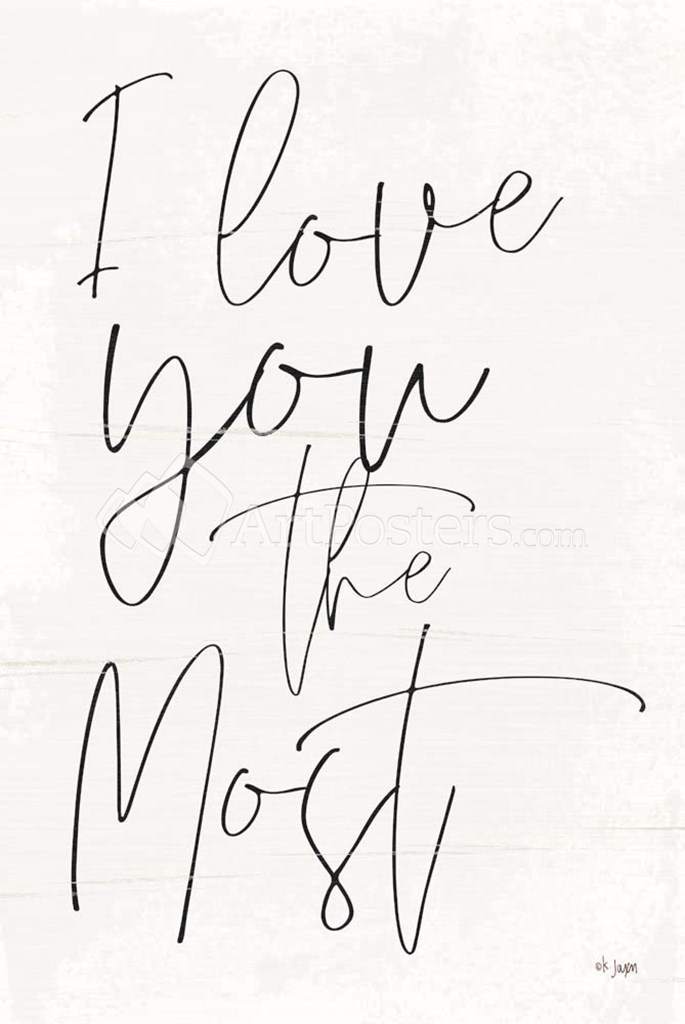 I love
you
the
Most
ArtPosters.com
©K. Jaxn